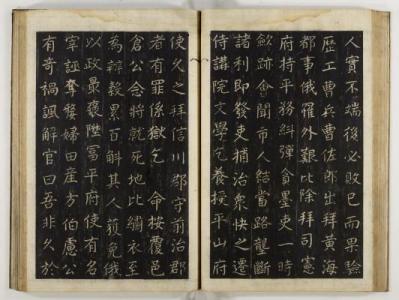 人實不端後必敗已而果驗
歷工曹兵曹佐郎出拜黃海
都事俄罹外艱比除拜司憲
府持平務糾彈貪墨吏一時
歛跡會聞市人結黨路壟斷
諸利即發吏捕治衆快之遷
侍講院文學乞養授平山府
使久之拜信川郡守前治郡
者有罪係獄乞 命按覆邑
倉公念將乾死地比繡衣至
為辦穀累百斛其人獲免俄
以政最褒陞冨平府使有名
宰誣奪嫠婦田庄方伯慮公
有奇禍諷解官曰吾非久於